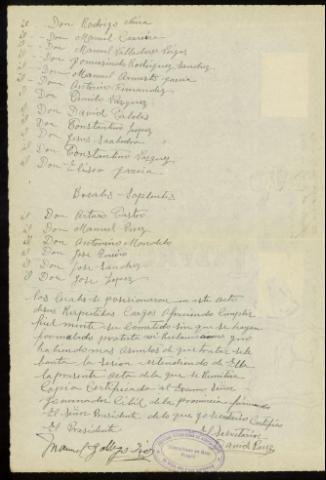 id Don Rodrigo
id " Don Manuel Carreira
id " Don Manuel Valladares
id " Don Gumersindo Rodriguez Sanchez
id " Don Manuel Armesto Garcia
id " Don Antonio Fernandez
id Don Benito Vazquez
id Don David
id Don Constantino Lopez
id Don Jesus Saabedra
id Don Constantino Vazquez
id Don Eliseo Garcia
Bocales - Suplentes
id Don Arturo Castro
id Don Manuel Perez
id Don Antonino Mondelo
id Don Jose
id Don Jose Sanchez
id Don Jose Lopez
los cuales se posisionaron en este acto
de sus Respectibos Cargos ofreciendo Cumplir
fiel mente su Cometido sin que se hayan
formulado protesta ni Reclamaciones y no
habiendo mas Asuntos de que tratar se le
banta la sesion estendiendo de Ella
la presente Acta de la que se Remitira
Copia Certificada al Exsmo Señor
Governador Cibil de la provincia firmando
El Señor Presidente de lo que yo secretario Certifico
El Presidente El Secretario
Manuel Gallego David Perez